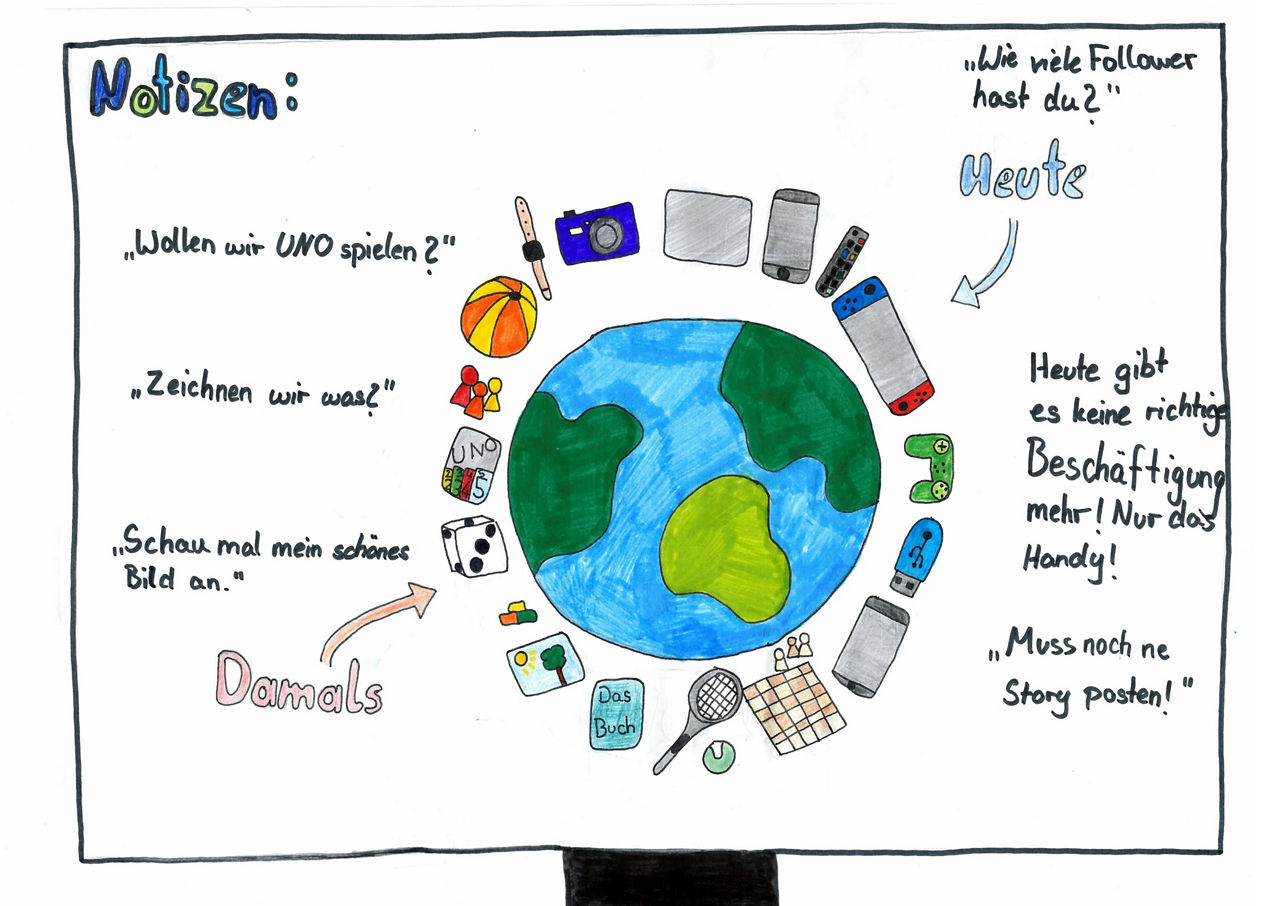 Notizen:
„Wie viele Follower
hast du?"
Heute
„Wollen wir UNO spielen?"
„Zeichnen wir was?"
„Schau mal mein schönes
Bild an."
Damals
UNO
5
Das
Buch
Heute gibt
es keine richtige
Beschäftigung
mehr! Nur das
Handy!
„Muss noch ne
Story posten!"